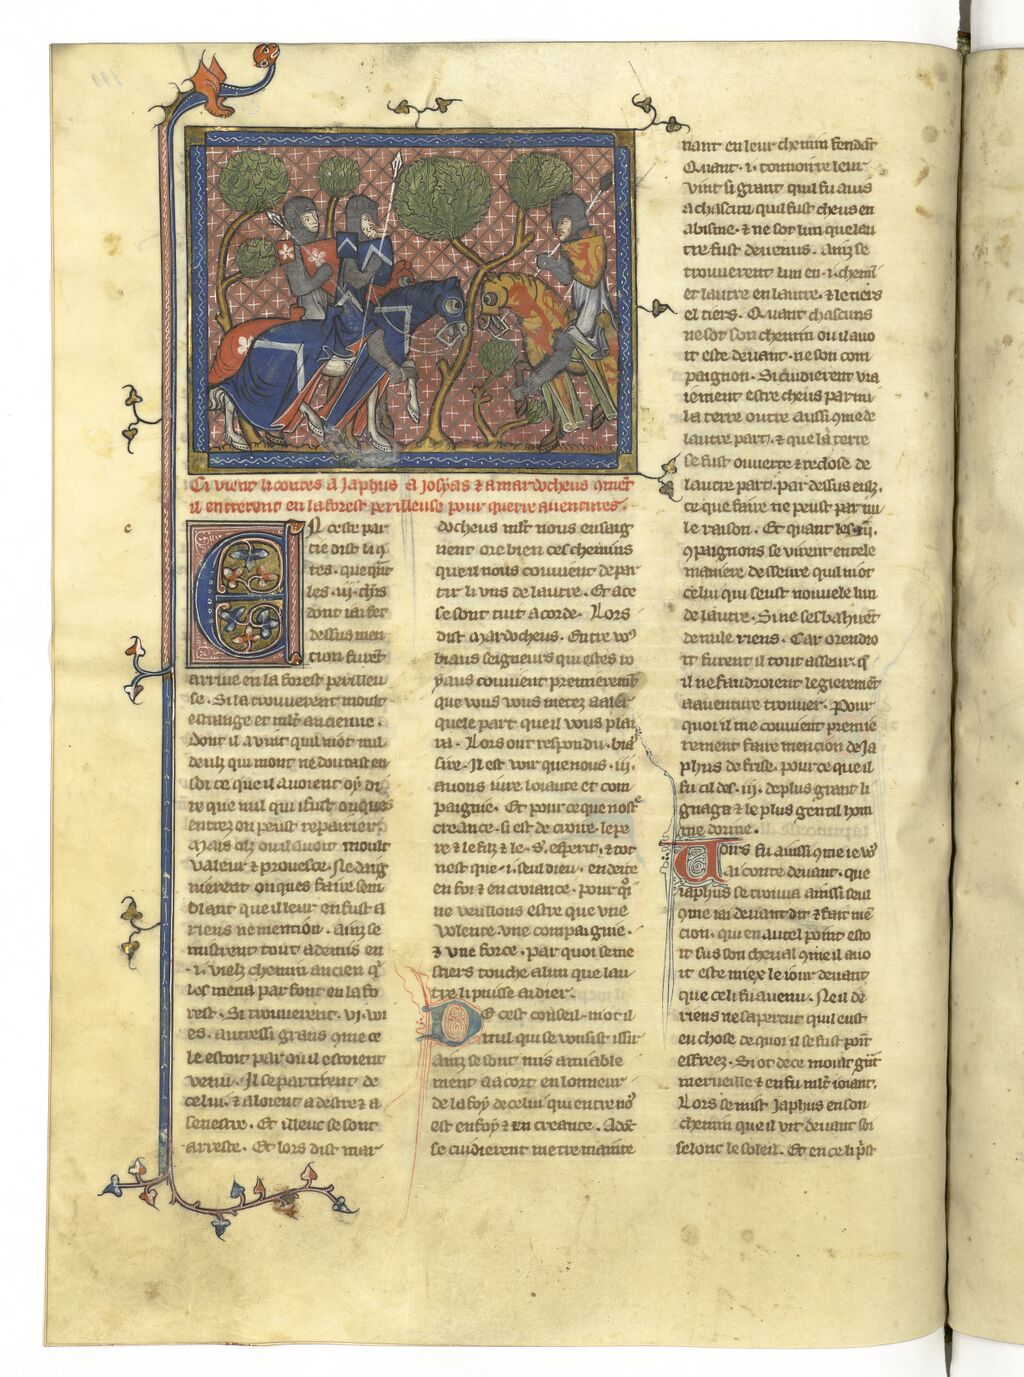 Ci vient li contes a Japhus a Josyas & a mardocheus 9mēt
il entrerent en la forest perilleuse pour querre auentures.
EN ceste par
tie dist li 9
tes . que q̄nt
les .iij. ch̄rs
dont iai fet
dessus men
cion furēt
arriue en la forest perilleu
se . Si la trouuerent moult
estrange et ml̄t ancienne .
Dont il auint quil not nul
deulz qui mont ne doutast en
soi ce que il auoient oy di
re que nul qui i fust onques
entrez en peust repairier
Mais cil ou il auoit moult
valeur & prouesce . Ne daig
nierent onques faire sem
blant que il leur en fust a
riens ne mention . Ainz se
mistrent tout ademis en
.i. vielz chemin ancien q̄
los mena parfont en la fo
rest . Si trouuerent .vi. voi
es . autressi grans 9me ce
le estoit par ou il estoient
venu . Il se partirent de
celui . & alerent a destre & a
senestre . Et illeuc se sont
arreste . Et lors dist mar
docheus ml̄t nous ensaig
nent ore bien ces chemins
que il nous couuient depar
tir li vns de lautre . Et a ce
se sont tuit acorde . Lors
dist Mardocheus . Entre vo9
biaus seigneurs qui estes io
yaus couuient premieremēt
que vous vous metez a aler
quele part que il vous plai
ra . Lors ont respondu . biā
sire . Il est voir que nous .iij.
auons iure loiaute et com
paignie . Et pour ce que nostᵉ
creance . si est de croire . le pe
re & le filz & le .s. esperit . & tot
nest que .i. seul dieu . en deite
en foi & en criance . pour q̄i
ne veullons estre que vne
volente . vne compaignie .
& vne force . par quoi se me
stiers touche a lun que lau
tre li puisse aidier .
De cest conseil . not il
nul qui se vousist issir
ainz se sont mis amiable
ment a acort en lonneur
de la foy de celui qui entre no9
est en foy & en creance . Adōt
se cuidierent metre mainte
nant en leur chemin fendāt
Quant .i. tonnoirre leur
vint si grant quil fu auis
a chascun quil fust cheus en
abisme . & ne sot lun que lau
tre fust deuenus . Ainz se
trouuerent lun en .i. chemī
et lautre en lautre . & le tiers
el tiers . Quant chascuns
ne sot son chemin ou il auo
it este deuant . ne son com
paignon . Si cuidierent vra
iement estre cheus parmi
la terre outre aussi 9me de
lautre part . & que la terre
se fust ouuerte & reclose de
lautre part . par dessus eulz .
ce que faire ne peust par nu
le raison . Et quant les .iij.
9paignons se virent en tele
maniere desseure quil not
celui qui seust nouuele lun
de lautre . Si ne sesbahirēt
de nule riens . Car orendro
it furent il tout asseur . q̄
il ne faudroient legieremēt
a auenture trouuer . Pour
quoi il me couuient premie
rement faire mencion de Ja
phus de frise . pour ce que il
fu cil des .iij. de plus grant li
gnage & le plus gentil hom
me dorme .
Voirs fu aussi 9me ie vo9
ai conte deuant . que
iaphus se trouua ainssi seul
9me iai deuant dit & fait mē
cion . qui en autel point esto
it sus son cheual 9me il auo
it este miex le iour deuant
que celi fu auenu . Ne il de
riens ne sapercut quil eust
eu chose de quoi il se fust poīt
effreez . Si ot de ce moult gūt
merueille & en fu ml̄t ioiant .
Lors se mist Japhus en son
chemin que il vit deuant soi
selonc le soleil . Et en ce li p̄st